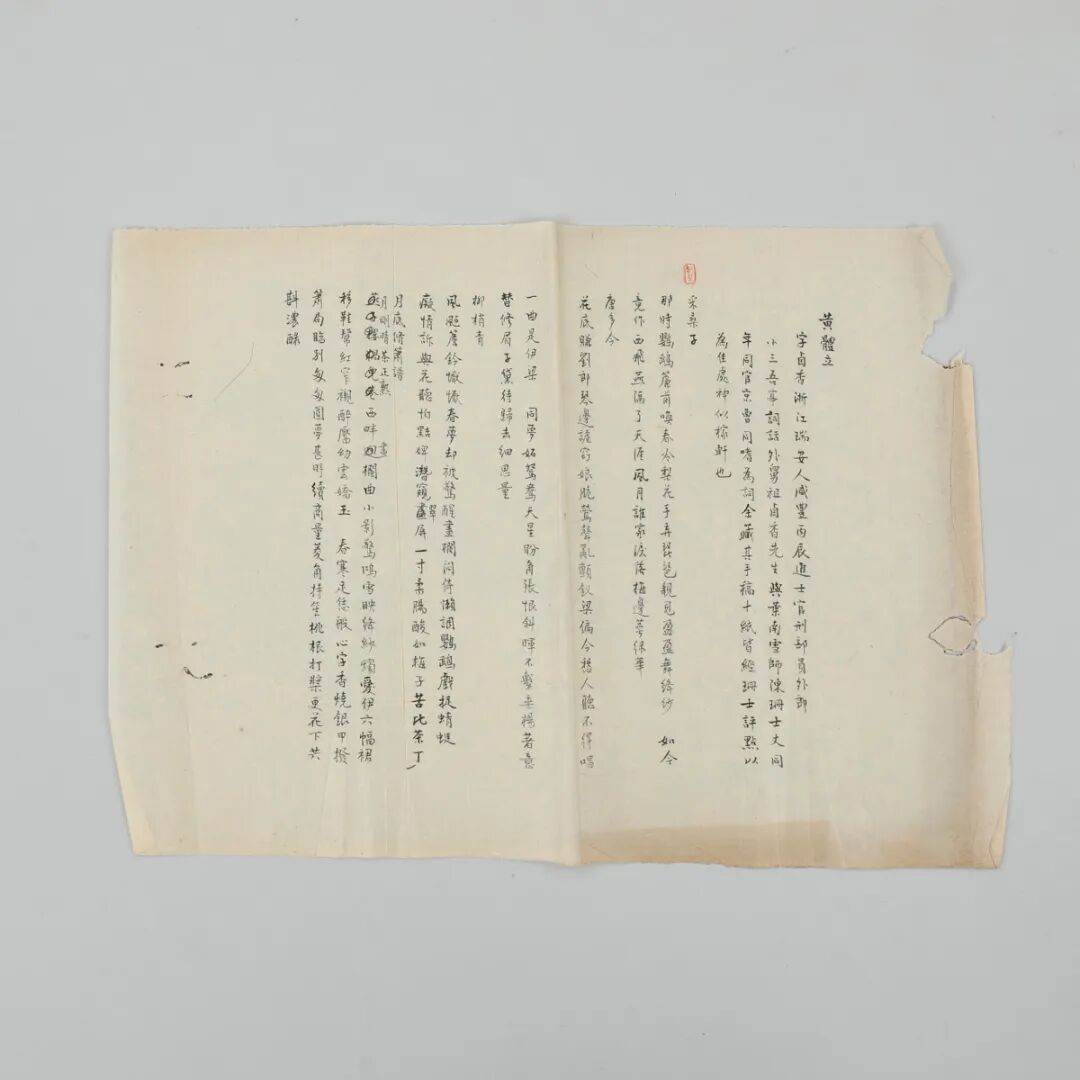 黃體立
字卣香浙江瑞安人咸豐丙辰進士官刑部員外郎
小三吾亭詞話外舅祖卣香先生與葉南雪師陳珊士丈同
年同官京曹同嗜為詞余藏其手稿十紙皆經珊士評點以
為佳處神似稼軒也
采桑子
那時鸚鵡簾前喚春冷梨花手弄琵琶親見盈盈舞絳紗　如今
竟作西飛燕隔了天涯風月誰家淚落梅邊萼綠華
唐多令
花底賺劉郎琴邊謔窈娘脆鶯聲亂顫釵梁偏令愁人聽不得唱
一曲是伊梁　同夢妬鴛鴦天星盼角張恨斜暉不繫垂楊著意
替修眉子黛待歸去細思量
柳梢青
風颭簾鈴懨懨春夢却被驚醒畫欄閒倚懶調鸚鵡戲捉蜻蜓
癡情訴與花聽怕點婢潛窺畫屏一寸柔腸酸如梅子苦比茶丁
翠
月底修簫譜
月明晴茶正熟
西畔迴欄曲小影驚鴻雪映絳紗燭憂伊六幅裙
畫
移鞋幫紅窄襯醉靨幼雲嬌玉　春寒足恁般心字香燒銀甲撥
簫局臨別匆匆圓夢甚時續商量菱角持笙桃根打槳更花下共
斟濃醁